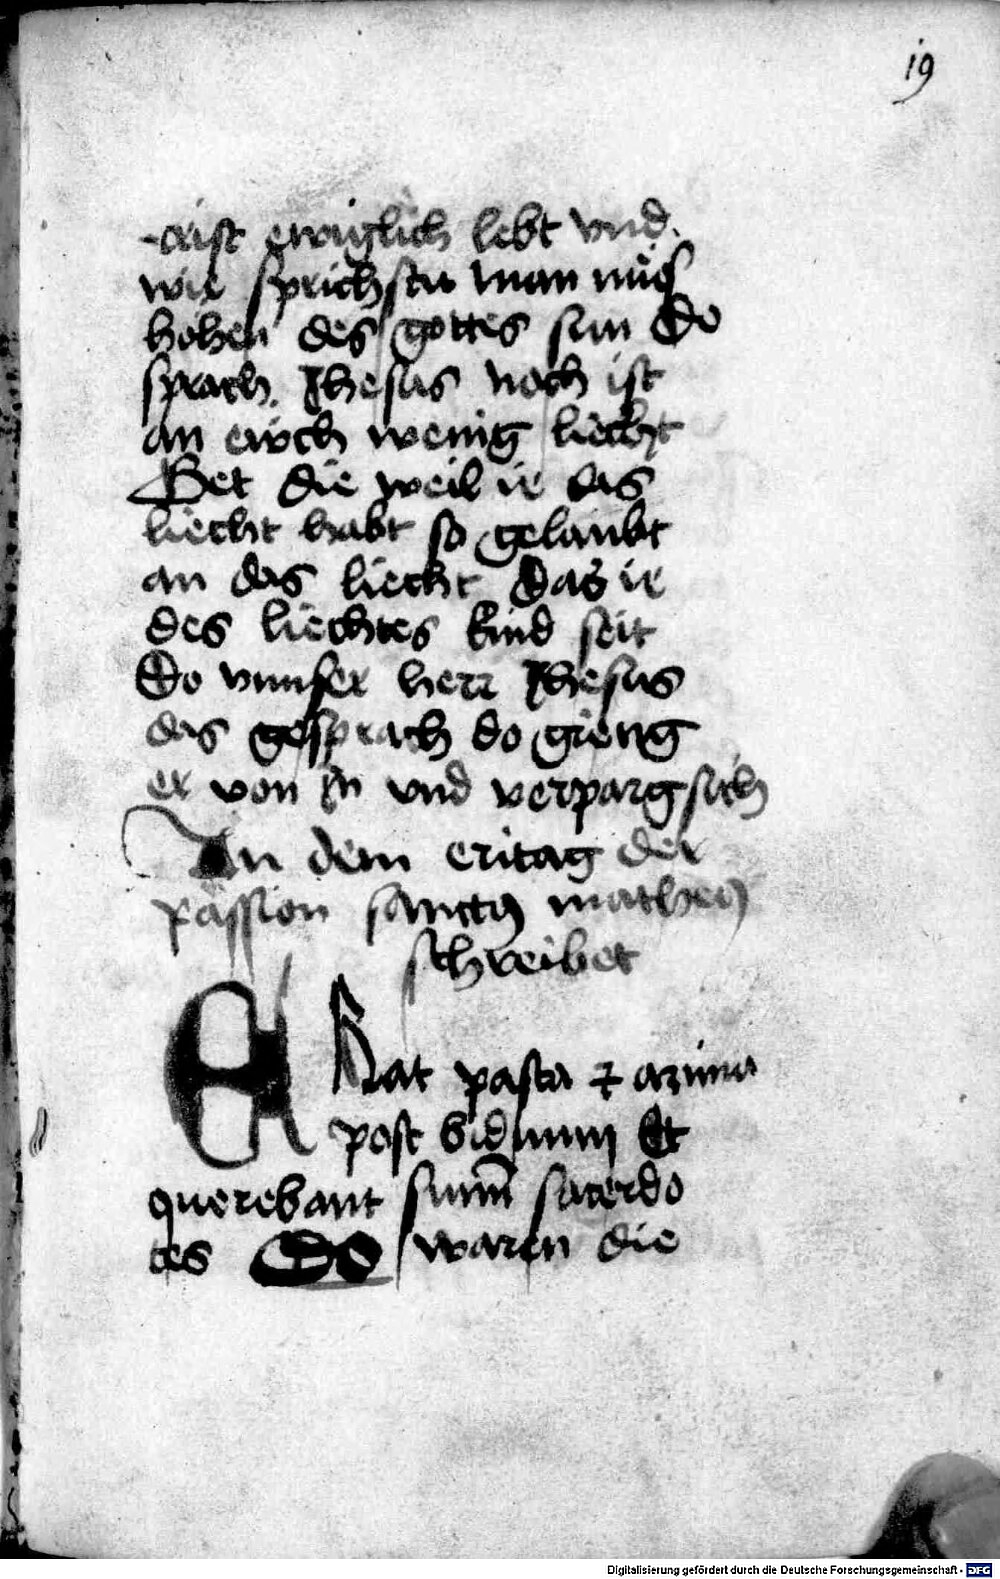 19
-crist ewiglich lebt vnd
wie sprichstu man mus
hohen des gottes sun Do
sprach Jhesus noch ist
an ewch wenig liecht
Get die weil ir das
liecht habt so gelaubt
an das liecht das ir
des liechtes kind seit
Do vnnser herr Jhesus
das gesprach do gieng
er von in vnd verparg sich
An dem eritag der
passion sanctus matheus
schreibet
ERat pasca et azima
post biduum Et
querebant summi sacerdo
tes Do waren die
Digitalisierung gefördert durch die Deutsche Forschungsgemeinschaft - DFG